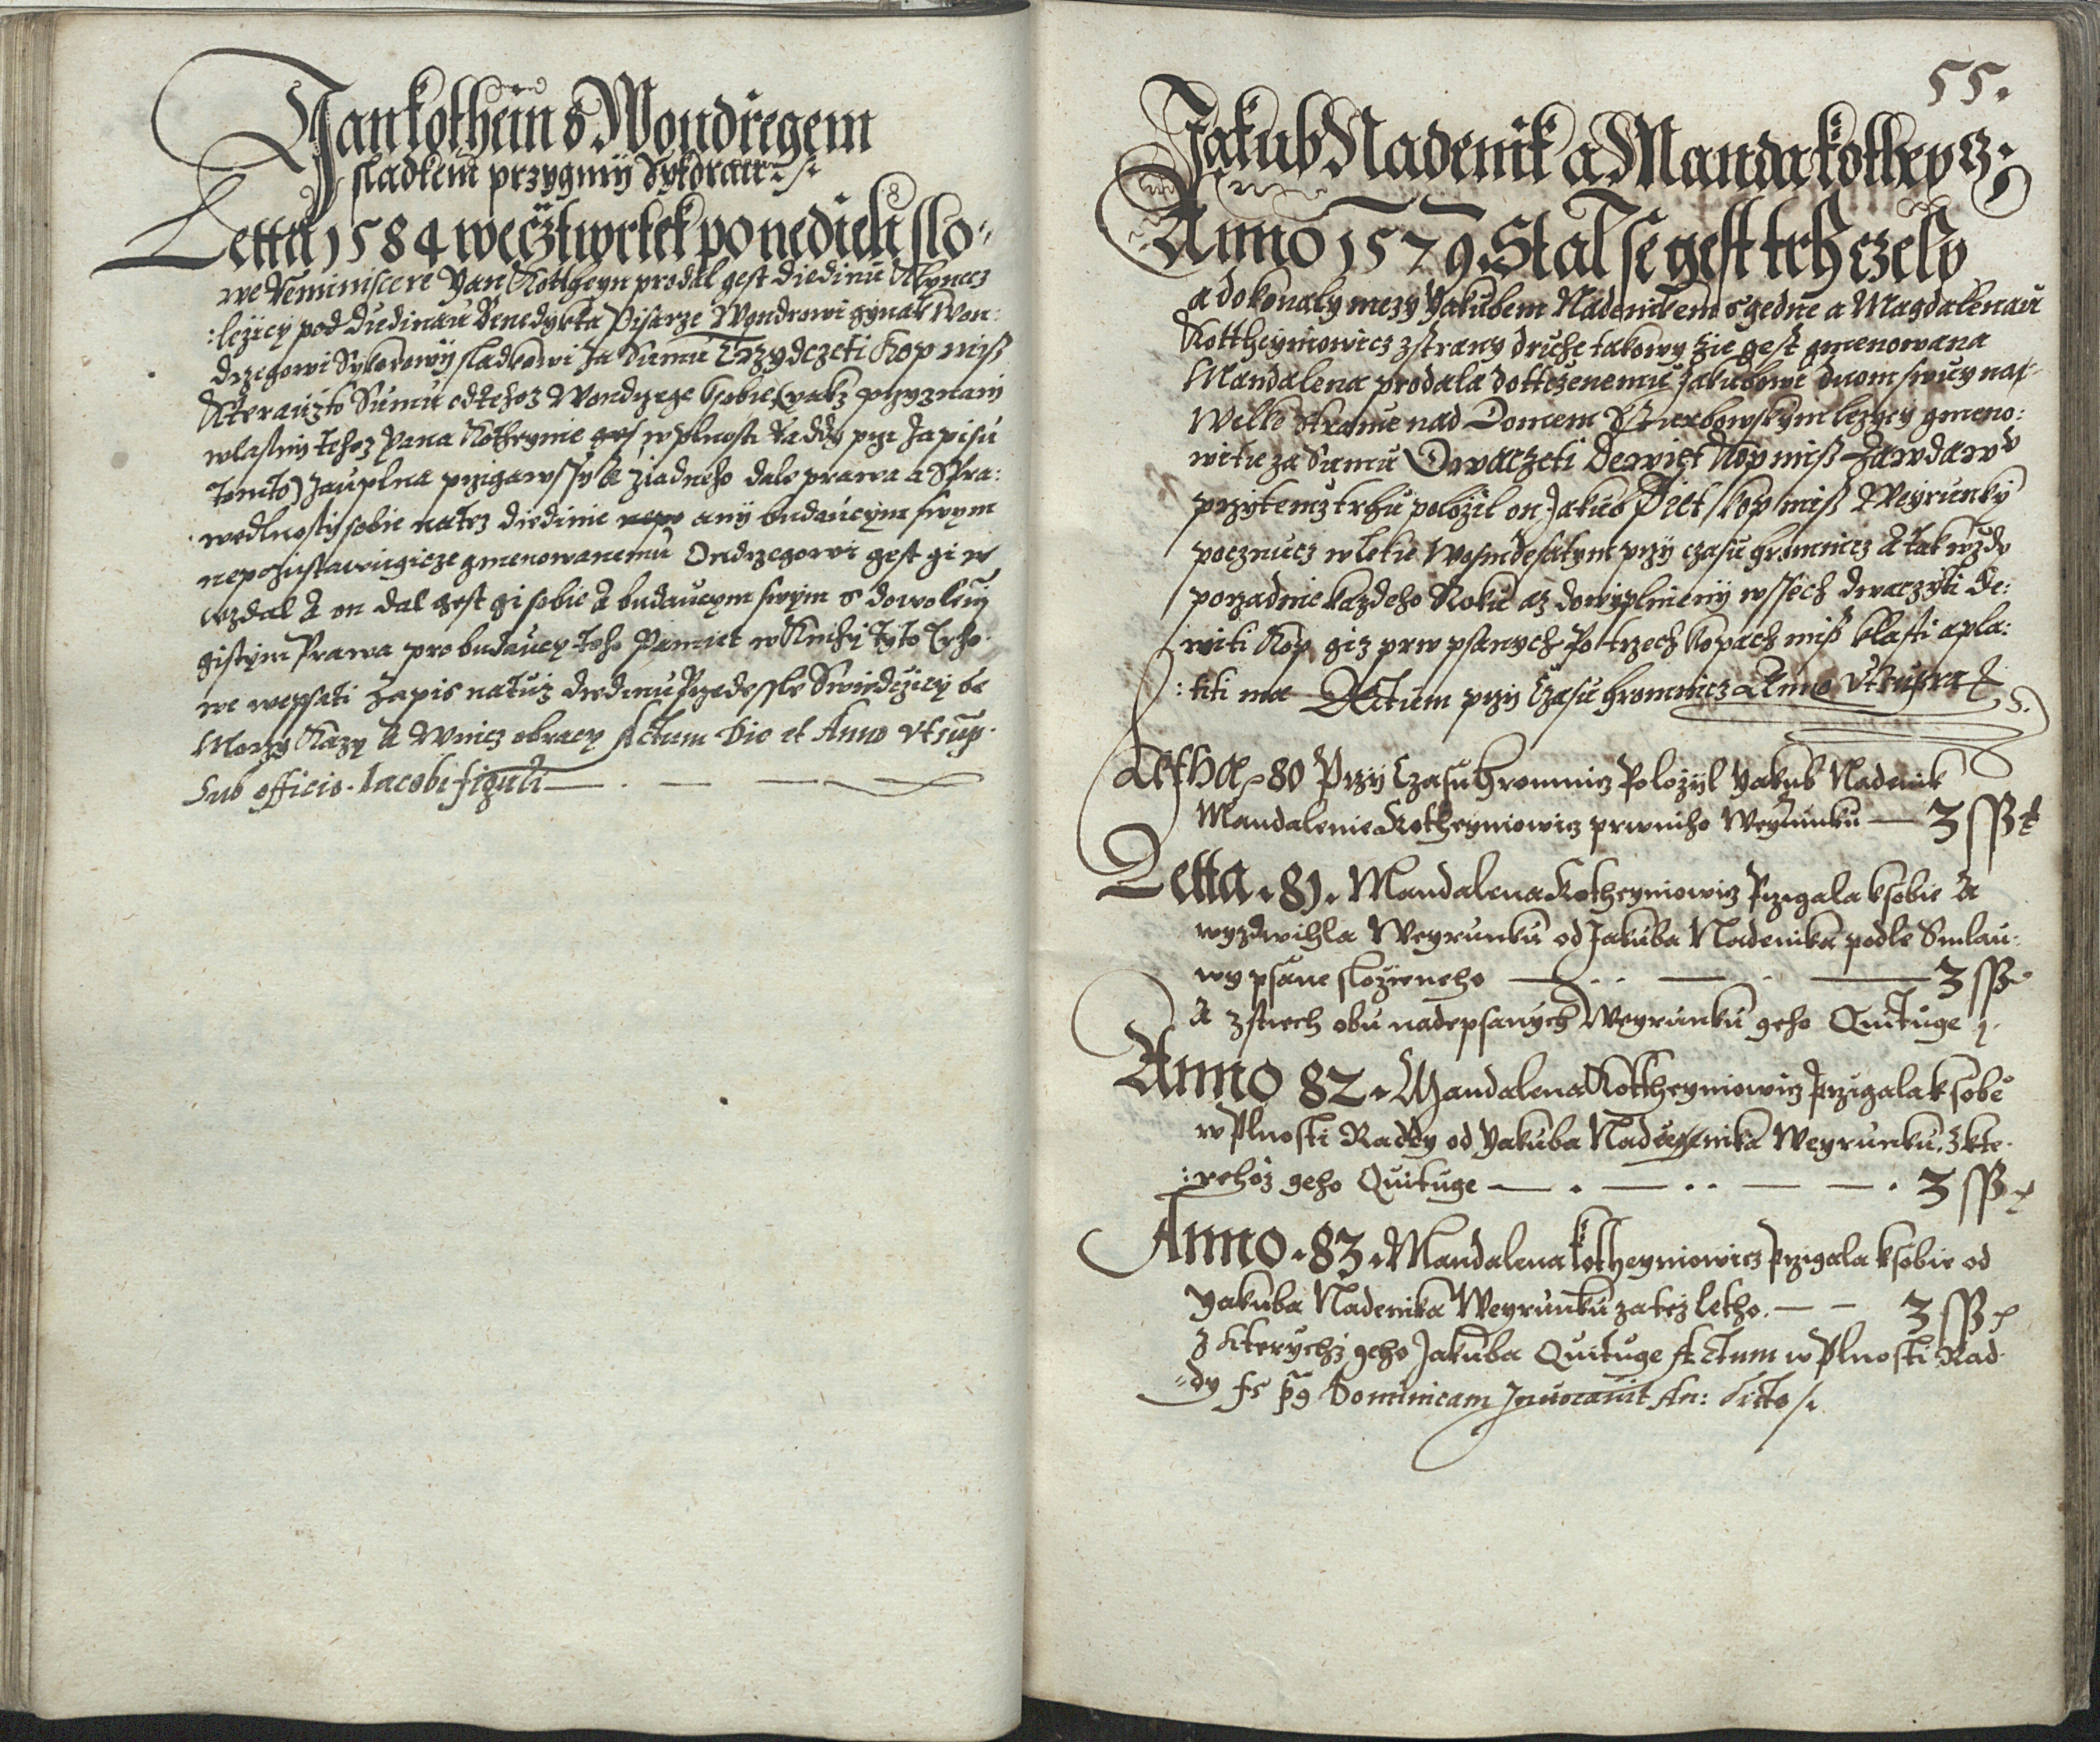 Jan kothein s Wondrzegem
sladkem przygmij Sykorau
Letta 1584 we cztwrtek po nedieli slo„
we Reminiscere Yan Kottheyn prodal gest diedinu
:lezicy pod diedinau Benedykta Pisarze Wondrowi gynak Won:
drzegowi Sykorowij sladkowi za Sumu Trzydczeti Kop miß
Kterauzto Sumu od tehoz Wondrzege k sobie (yakz przyznanij
wlastnij tehoz Yana Kotheynie w plnosti Raddy prze zapisu
tomto) zauplna przigawssy a ziadneho dale prawa a Spra:
wedlnostij sobie na tez diedinie anij budaucym swym
nepozustawugicze gmenowanemu Ondrzegowi gest gi w
wzdal a on dal gest gi sobie a budaucym swym s dowolenij
gistym Prawa pro buducy toho Pamiet w Knihy tyto Trho
we wepsati Zapis na tuz diedinu Przedessle Swiedczicy se
Morzy Kazy a Wnicz obracy Actum Die et Anno vt sup.
Sub officio Iacobi figuli
55.
Jakub Nadenik a Manda kotheyz
Anno 1579 Stal se gest trh czely
a dokonaly mezy Yakubem Nadenikem s gedne a Magdalenau
Kottheyniowicz z strany druhe takowy zie gest gmenowana
Mandalena prodala dottczenemu Jakubowi duom swuy na
Welke Strane nad Domem lezycy gmeno:
wite za Sumu Dwaczeti Dewiet Kop miß Zawdawv
przy temz trhu polozil on Jakub Piet kop miß Weyrunky
pocznucz w letie Wosmdesatym przij czasu hromnicz a tak wzdy
porzadnie kazdeho Roku az do wyplnienij wssech dwaczeti de:
witi Kop giz prw psanych Po trzech kopach miß klasti a pla:
:titi ma Actum przij czasu hromnicz Anno vt supra
Letha 80 Przij Czasu hromnicz Polozyl Yakub Nadenik
Mandalenie Kotheyniowicz prwniho Weyrunku — 3 ss
Letta 81. Mandalena Kotheyniowicz Przigala k sobie a
wyzdwihla Weyrunku od Jakuba Nadenika podle Smlau:
wy psane slozieneho — 3 ss
a z tiech obu nadepsanych Weyrunku geho Quituge
Anno 82. Mandalena Kottheyniowicz Przigala k sobe
w Plnosti Raddy od Yakuba Nadenika Weyrunku, z kte
:rehoz geho Quituge — 3 ss
Anno 83. Mandalena kotheyniowicz przigala k sobie od
Yakuba Nadenika Weyrunku za tez letho. — 3 ss
z kterychz geho Jakuba Quituge Actum w Plnosti Rad
„dy Dominicam Inuocauit An: ditto